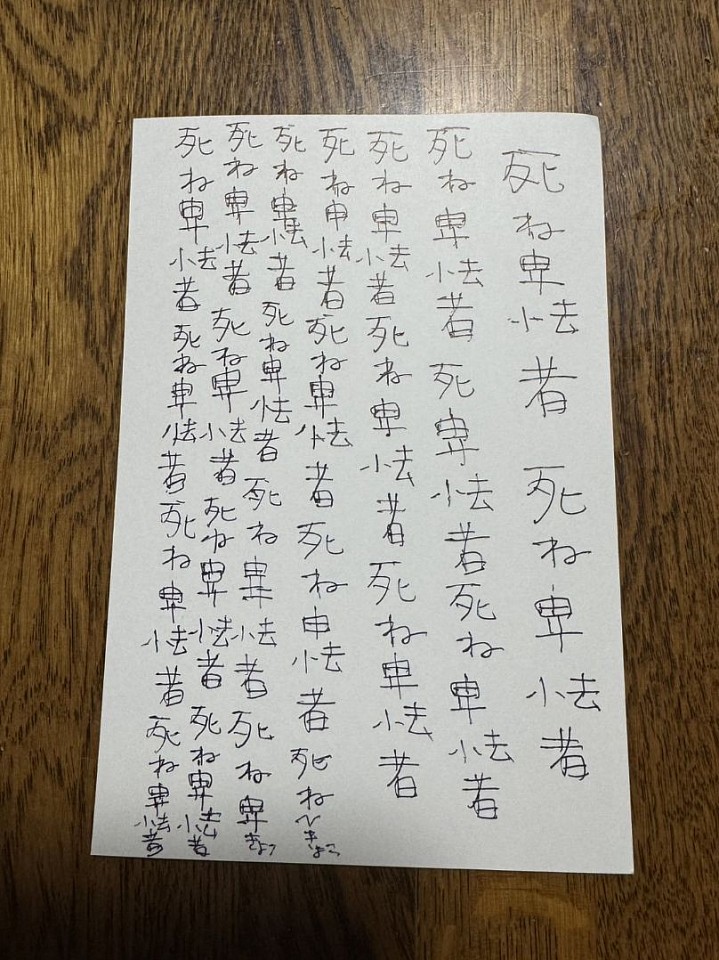 死ね卑怯者 死ね卑怯者
死ね卑怯者 死卑怯者 死ね卑怯者
死ね卑怯者 死ね卑怯者 死ね卑怯者
死ね申怯者 死ね卑怯者 死ね申怯者 死ねひきょう
死ね卑怯者 死ね卑怯者 死ね卑怯者 死ね卑きょう
死ね卑怯者 死ね卑怯者 死ね卑怯者 死ね卑怯者
死ね卑怯者 死ね卑怯者 死ね卑怯者 死ね卑怯者